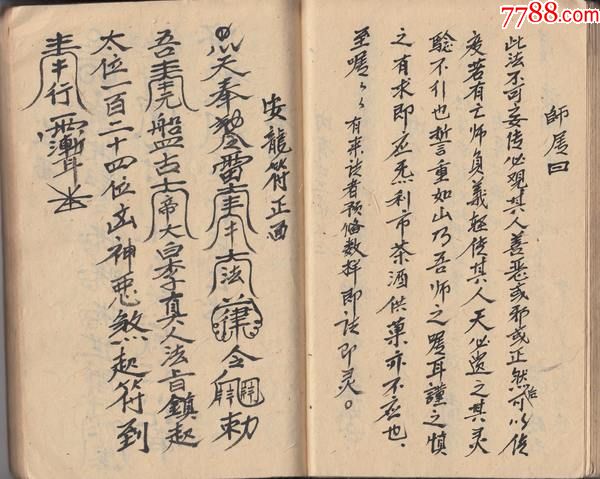 7788.com
中国收藏热线
師屋曰
此法不可妄传必观其人善恶或邪或正然后可以传
度若有亡师负義輕传其人天必遗之其灵
驗不行也誓重如山乃吾师之嘱耳謹之慎
之有求即应炁利市茶酒供菓亦不应也
至嘱々々有来法者预俻数样即法即灵。
安龍符正面
天奉 雷 法律令 勅
吾 盤古 帝大 李真人法旨鎮起
太位一百二十四位凶神惡煞起符到
奉行